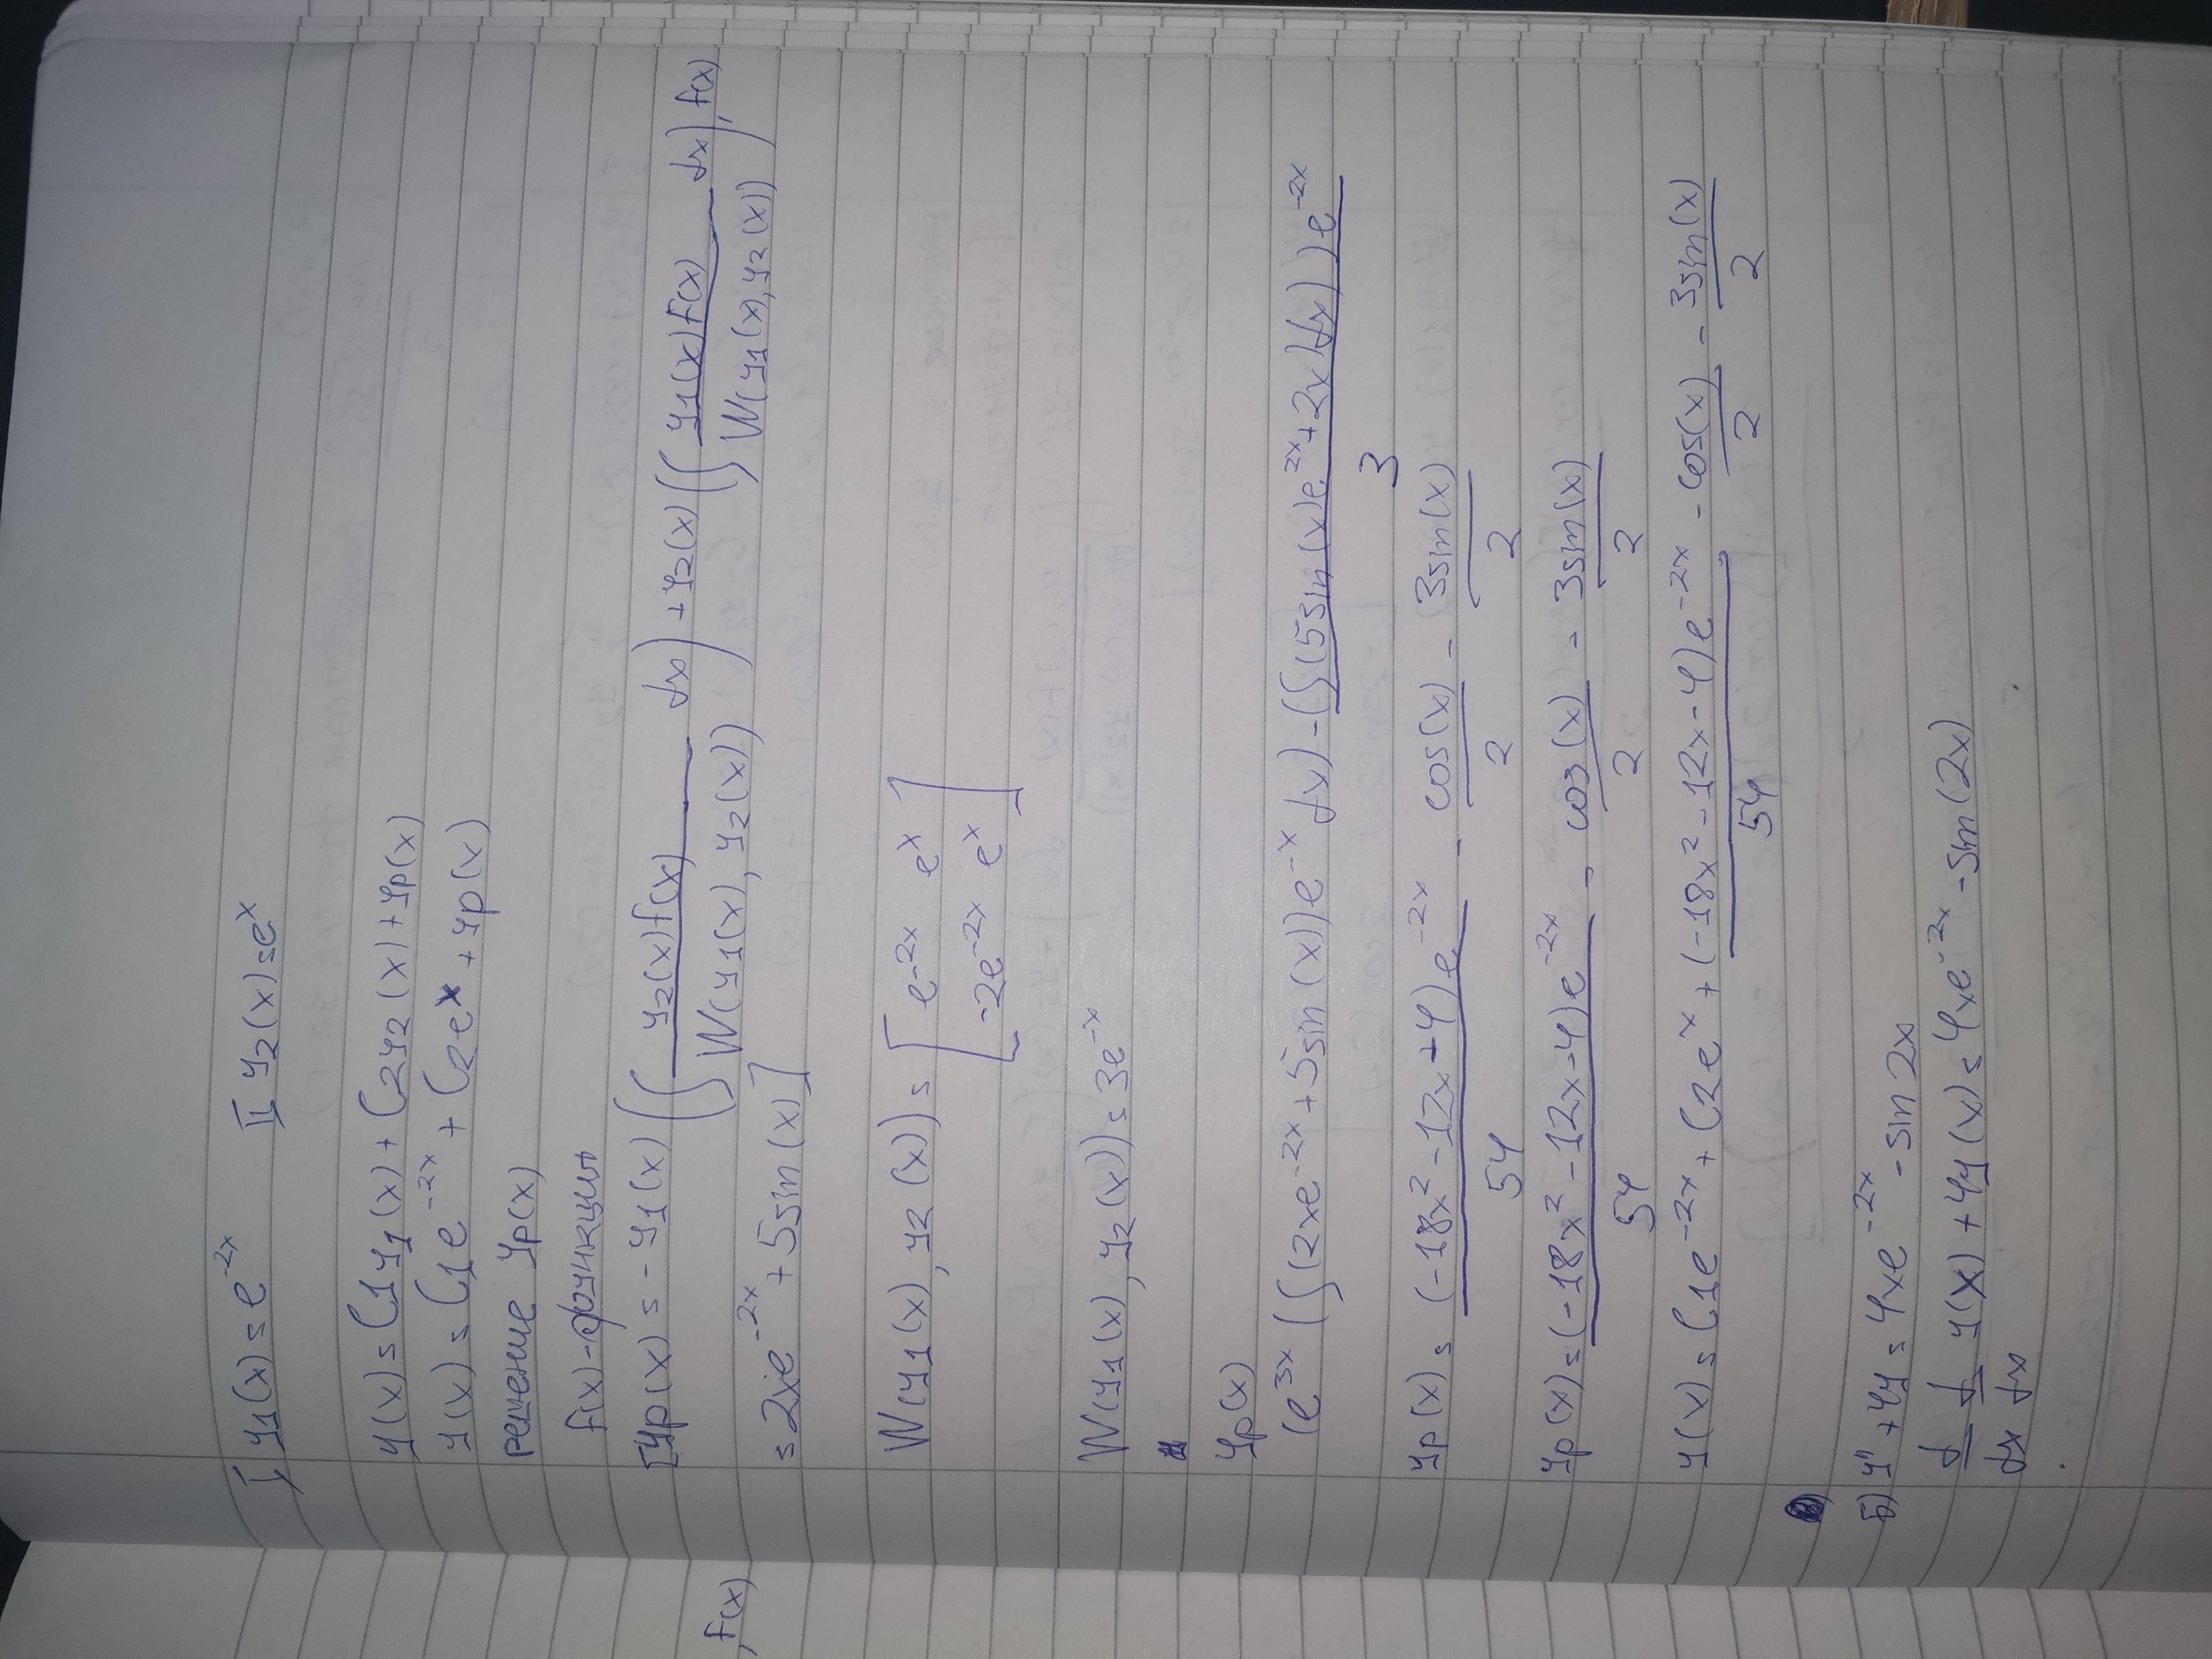 I y1(x) = e^-2x II y2(x) = e^x
y(x) = C1y1(x) + C2y2(x) + yp(x)
y(x) = C1e^-2x + C2e^x + yp(x)
решение yp(x)
f(x) - функция
[yp(x) = - y1(x) (∫ y2(x)f(x) / W(y1(x), y2(x)) dx) + y2(x) (∫ y1(x)f(x) / W(y1(x), y2(x)) dx), f(x)
, f(x)
= 2xe^-2x + 5sin(x)]
W(y1(x), y2(x)) = [e^-2x e^x
-2e^-2x e^x]
W(y1(x), y2(x)) = 3e^-x
yp(x)
(e^3x (∫(2xe^-2x + 5sin(x))e^-x dx) - (∫(5sin(x)e^2x + 2x)dx))e^-2x / 3
yp(x) = (-18x² - 12x - 4)e^-2x / 54 - cos(x) / 2 - 3sin(x) / 2
yp(x) = (-18x² - 12x - 4)e^-2x / 54 - cos(x) / 2 - 3sin(x) / 2
y(x) = C1e^-2x + C2e^x + (-18x² - 12x - 4)e^-2x / 54 - cos(x) / 2 - 3sin(x) / 2
Б) y'' + 4y = 4xe^-2x - sin2x
d/dx d/dx y(x) + 4y(x) = 4xe^-2x - sin(2x)